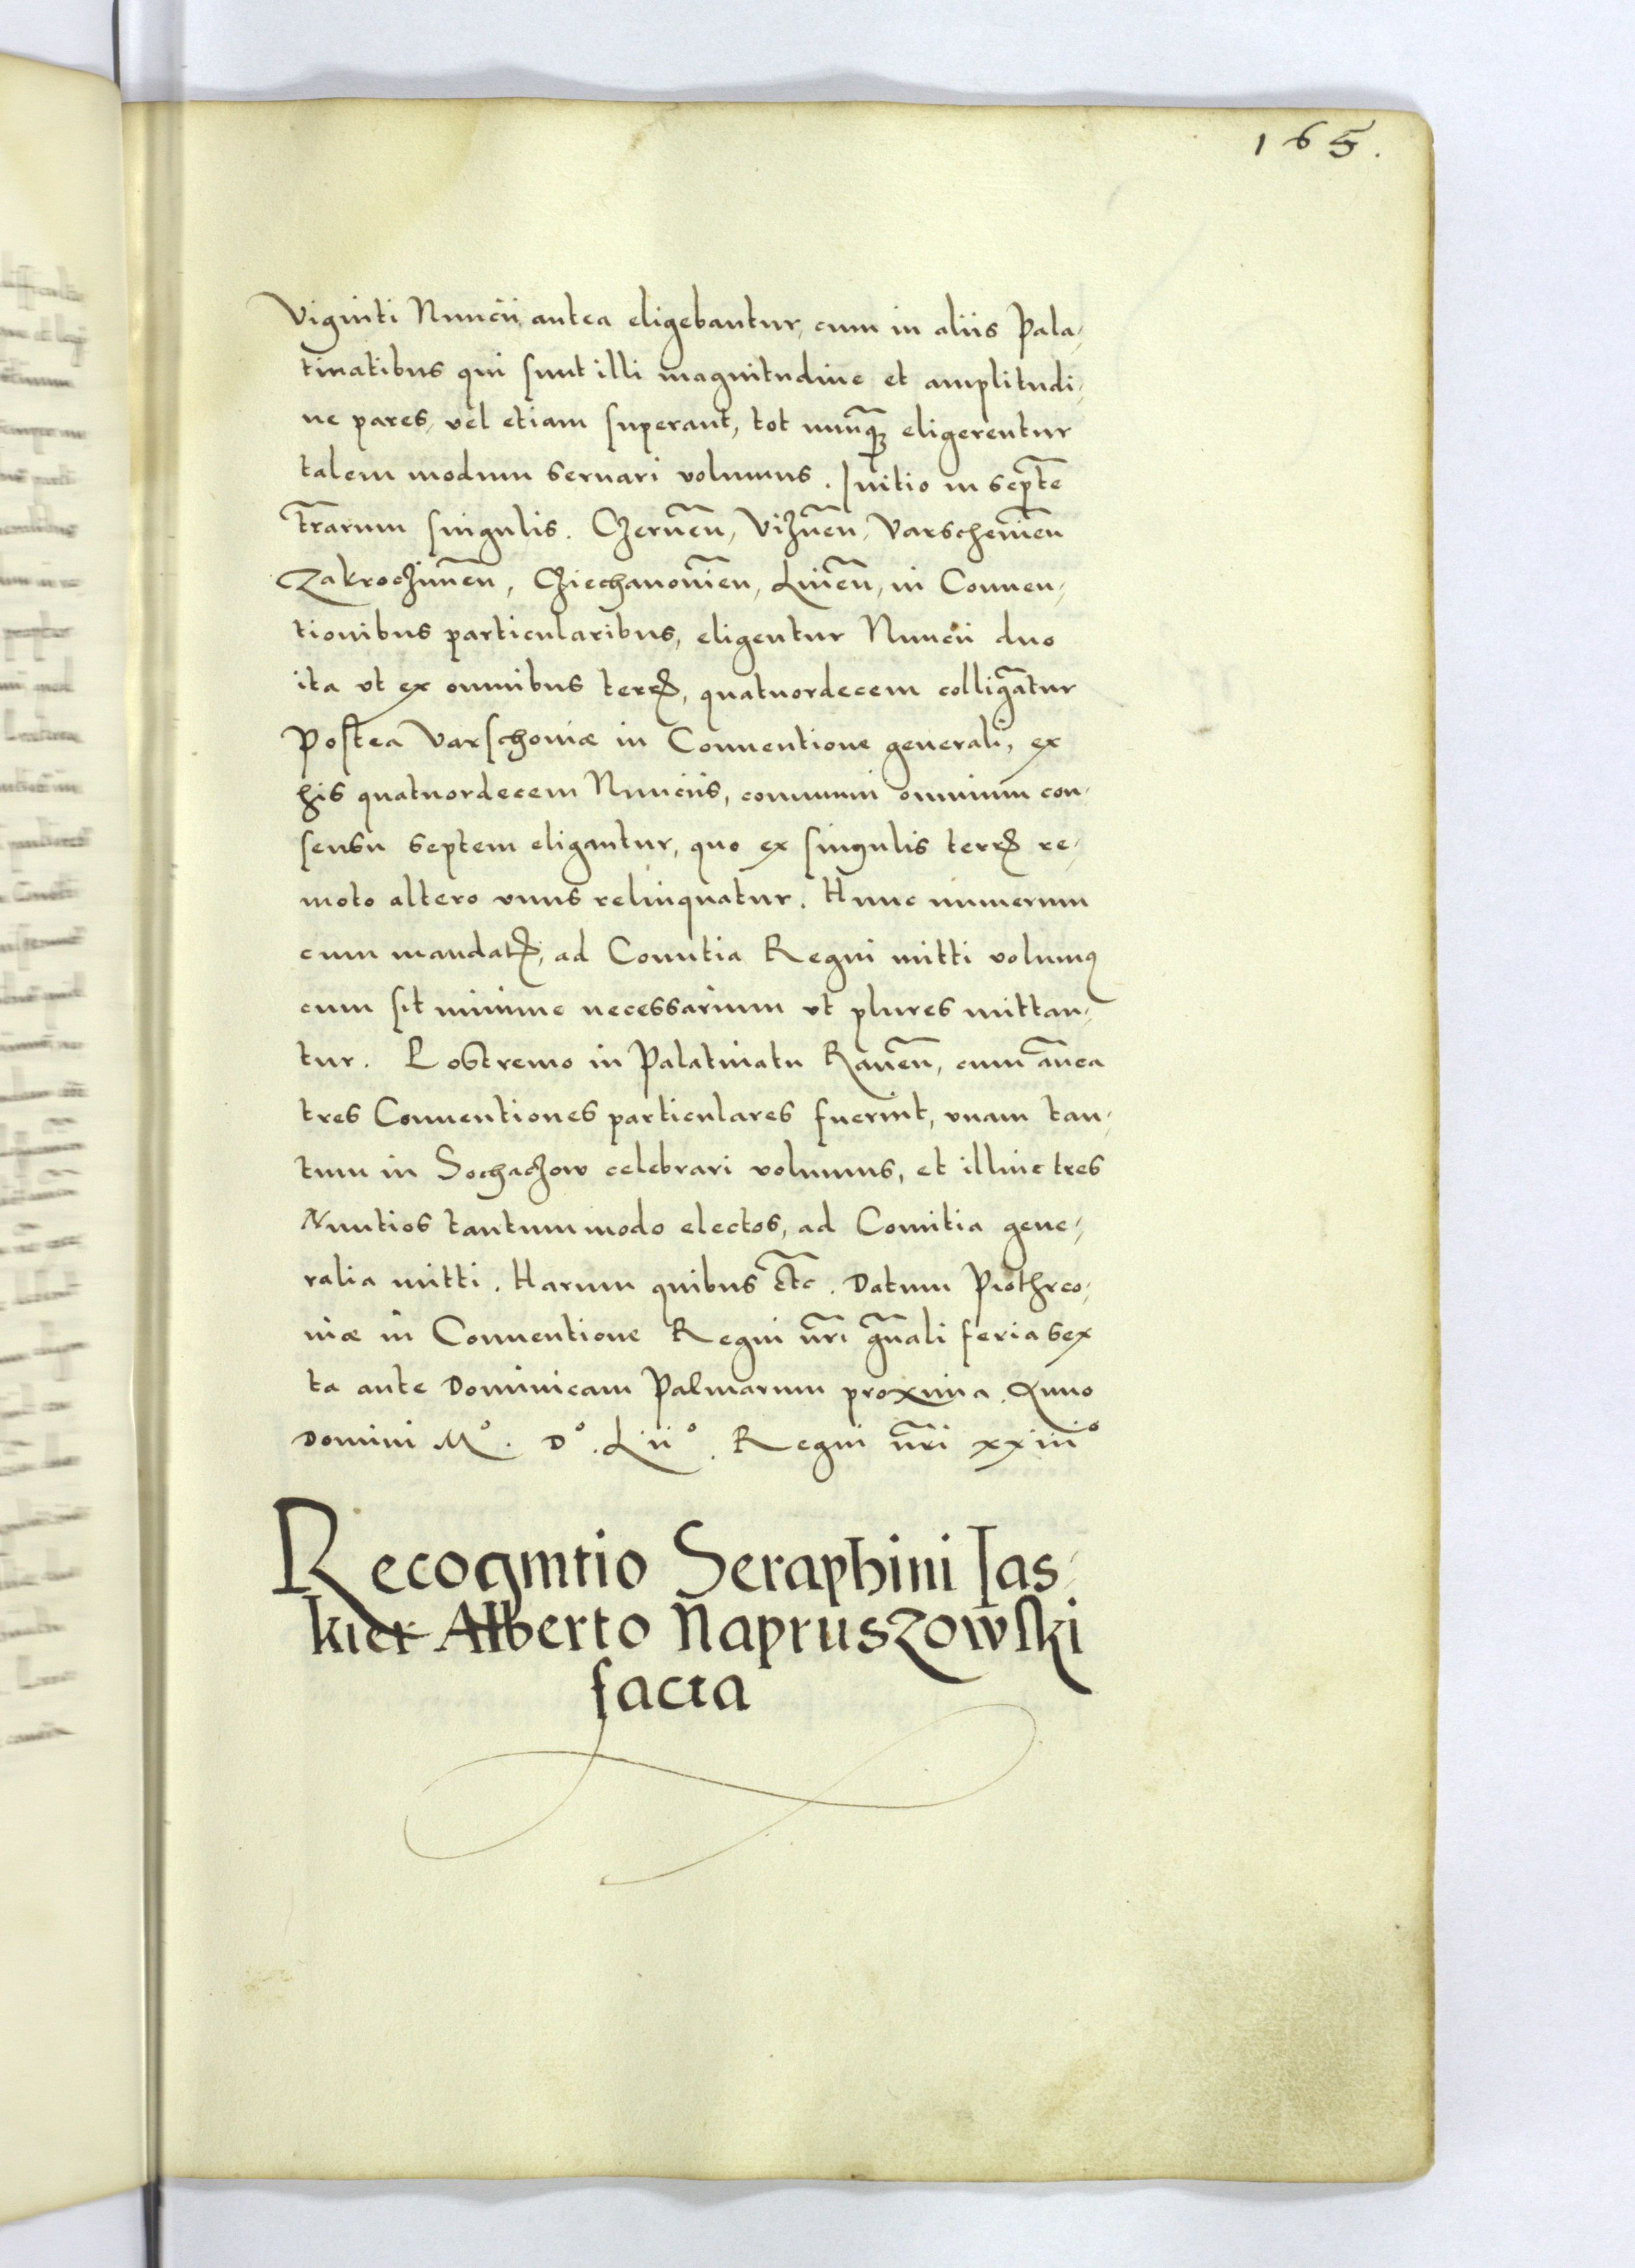 165.
Viginti Nuncii, antea eligebantur, cum in aliis Pala,
tinatibus qui sunt illi magnitudine et amplitudi,
ne pares, vel etiam superant, tot nunq̃ʒ eligerentur
talem modum seruari volumus. Initio in septē
tr̃arum singulis. Czerneñ, Vizneñ, Varscheuieñ
Zakroczimeñ, Cziechanouieñ, Liueñ, in Conuen,
tionibus particularibus, eligentur Nuncii duo
ita vt ex omnibus terrꝭ, quatuordecem colligãtur
Postea Varschouiæ in Conuentione generali, ex
his quatuordecem Nunciis, communi omnium con,
sensu septem eligantur, quo ex singulis terrꝭ re,
moto altero vnus relinquatur. Hunc numerum
cum mandatꝭ, ad Comitia Regni mitti volumꝰ
cum sit minime necessarium vt plures mittan,
tur. Postremo in Palatinatu Raueñ, cum ãnea
tres Conuentiones particulares fuerint, vnam tan,
tum in Sochaczow celebrari volumus, et illinc tres
Nuntios tantummodo electos, ad Comitia gene,
ralia mitti. Harum quibus etc̃. Datum Piothrco,
uiæ in Conuentione Regni nr̃i gñali feria sex
ta ante Dominicam Palmarum proxima. Anno
Domini Mº. Dº. Liiº. Regni nr̃i xxiiiº
Recognitio Seraphini Jas,
kier Alberto Napruszowski
facta